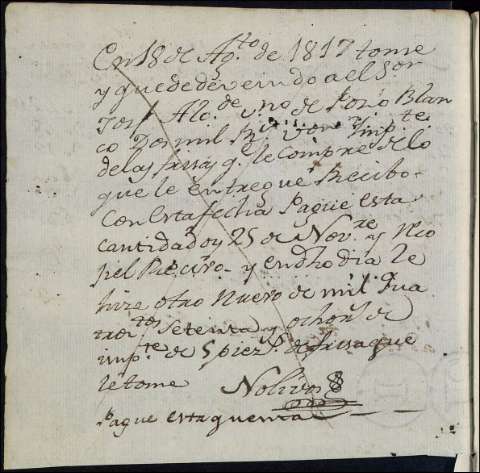 En 18 de Ag.to de 1817 tome
y quede deviendo a el Señor
de V.no de Pozo Blan
co Dos mil R.s Von Ymp.te
de las q.e le compre de lo
que le entregue Recibo
con esta fecha Pague esta
cantidad oy 25 de Nov.re y
y en dho dia le
hize otro Nuevo de mil qua
tro.tos setenta y ocho R.s de
imp.te de 5 piez.s de que
le tome Nolivos
Pague esta quenta